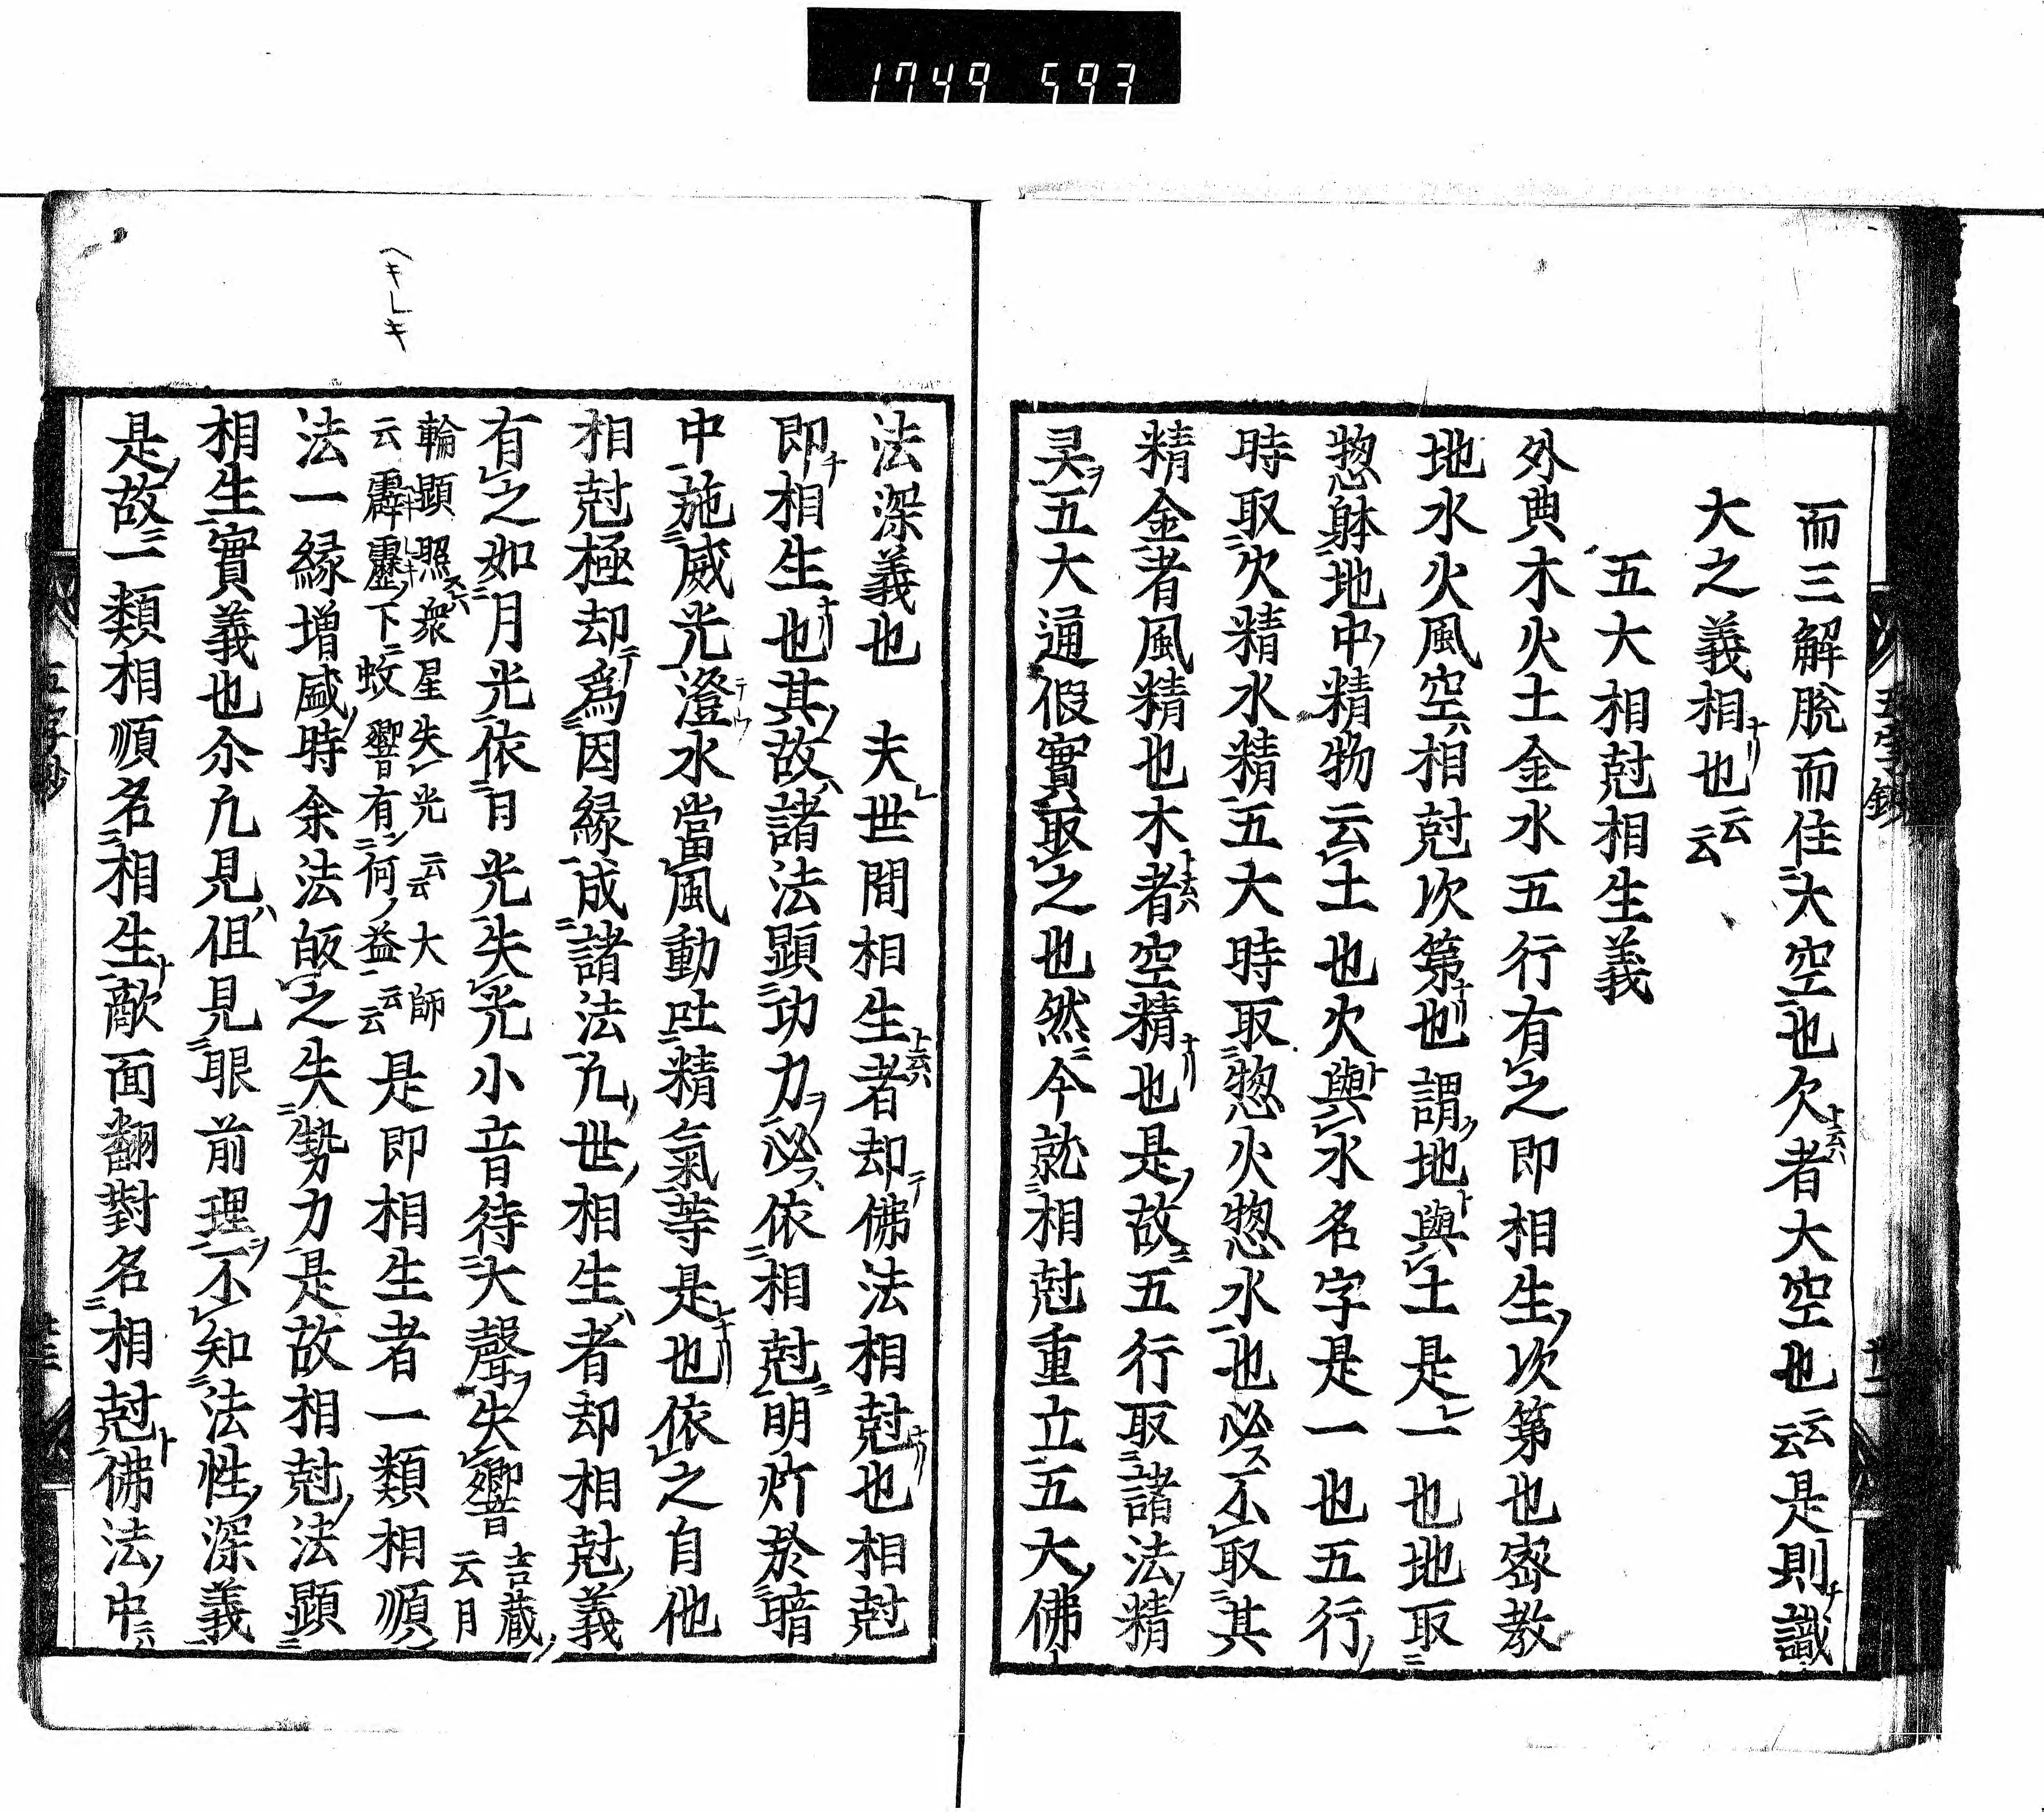 1749 593
而三解脱而住大空也欠者大空也云云是則識
大之義相也云云
五大相尅相生義
外典木火土金水五行有之即相生次第也密教
地水火風空相尅次第也謂地與土是一也地取
惣躰地中精物云土也火與水名字是一也五行
時取火精水精五大時取惣火惣水也必不取其
精金者風精也木者空精也是故五行取諸法精
灵五大通假實取之也然今就相尅重立五大佛
法深義也 夫世間相生者却佛法相尅也相尅
即相生也其故諸法顕功力必依相尅明灯於暗
中施威光澄水當風動吐精氣等是也依之自他
相尅極却為因縁成諸法凢世相生者却相尅義
有之如月光依日光失光小音待大聲失響吉藏云月
輪顕照衆星失光云云大師
云霹靂下蚊響有何益云云是即相生者一類相順
法一縁増盛時余法皈之失勢力是故相尅法顕
相生實義也尒凢見但見眼前理不知法性深義
是故一類相順名相生敵面翻對名相尅佛法中
ヘキレキ
五字鈔
十二
五字鈔
十三